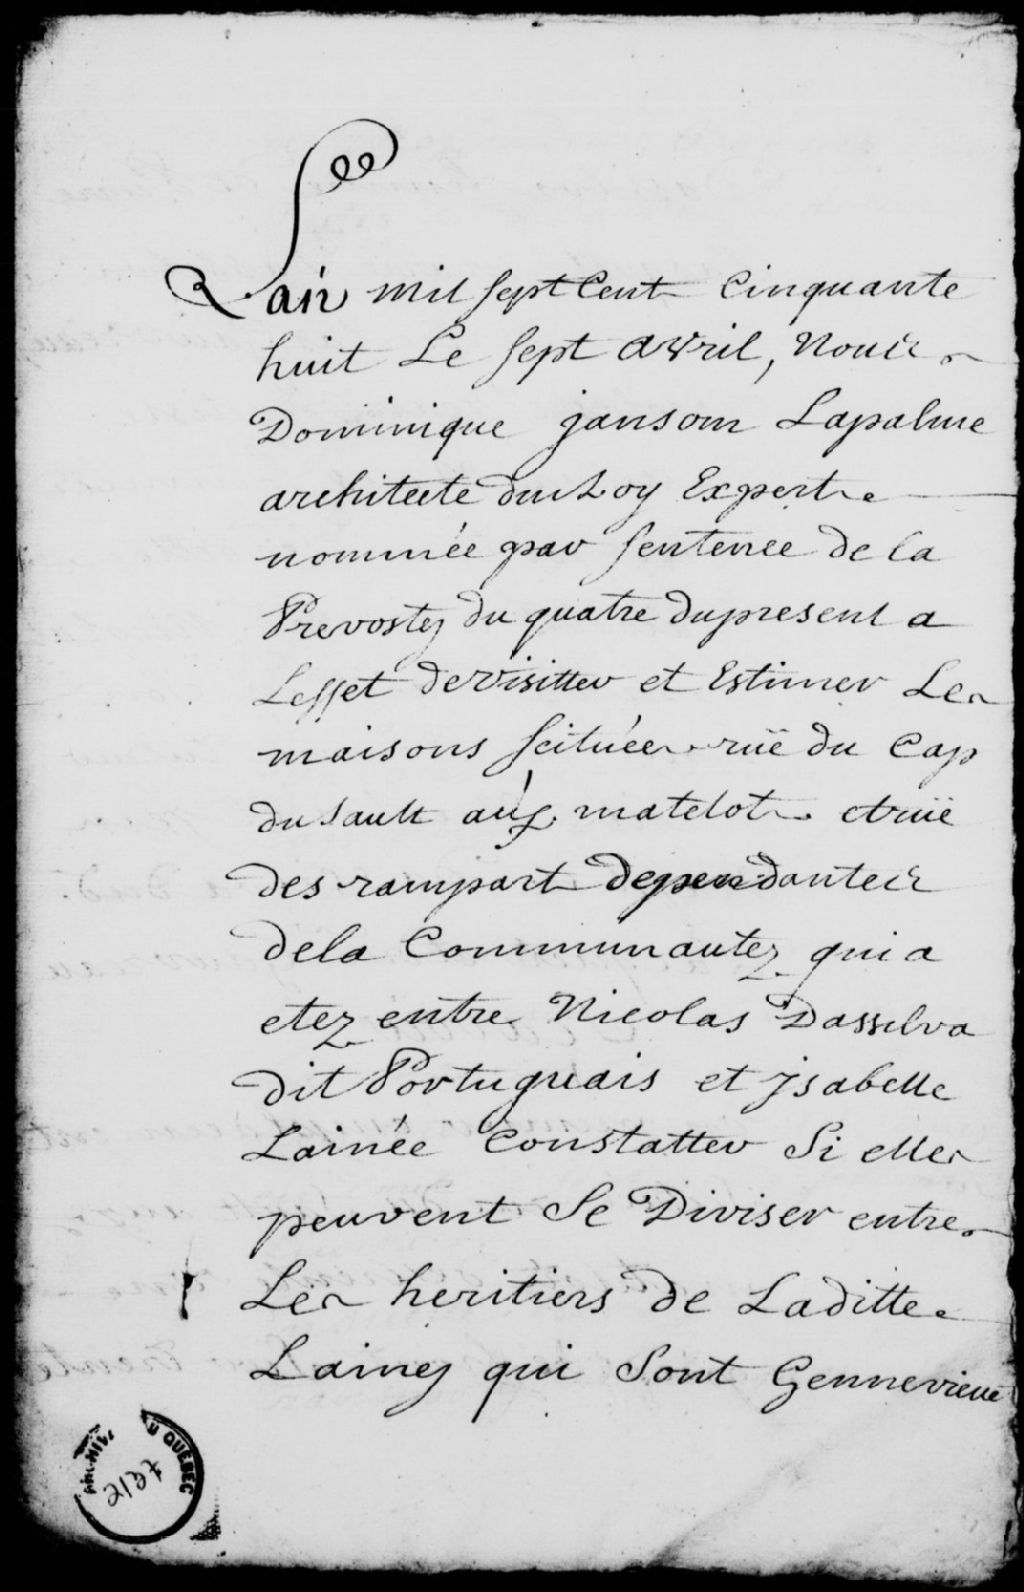 Lan mil sept Cent Cinquante
huit Le sept avril, Nous
Dominique jansom Lapalme
architecte du Roy Expert
nommée par sentence de la
Prevostez du quatre du present a
Leffet de visitter et Estimer Les
maisons scituées rüe du Cap
du sault aux matelots et rüe
des rampart dependantes
de la Communautez qui a
etez entre Nicolas Dassilva
dit Portuguais et jsabelle
Lainée Constatter Si elles
peuvent Se Diviser entre
Les heritiers de Laditte
Lainey qui Sont Gennevieve
U QUÉBEC
2127